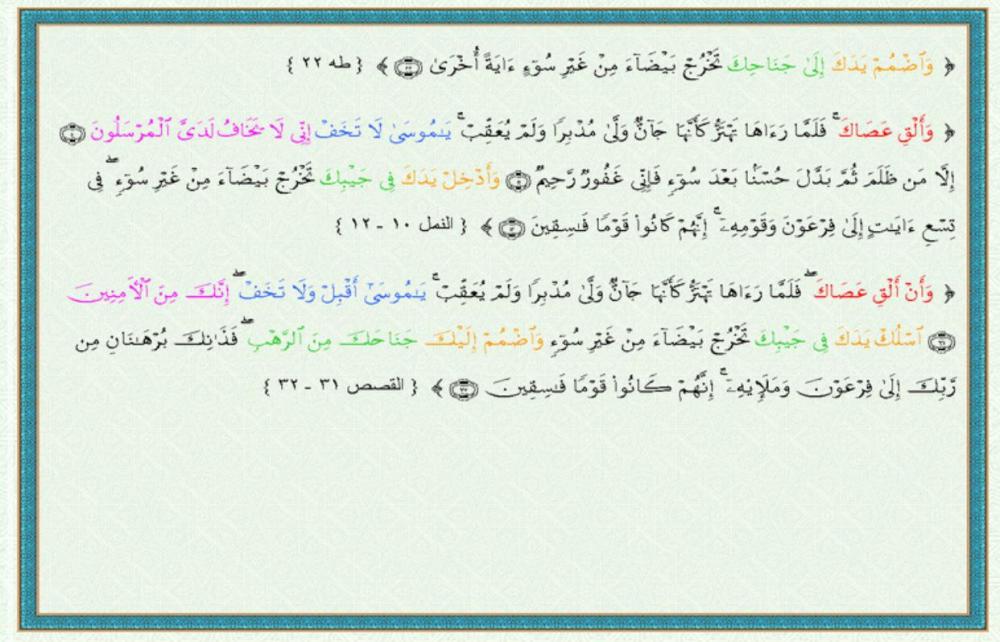 ﴿ وَٱضْمُمْ يَدَكَ إِلَىٰ جَنَاحِكَ تَخْرُجْ بَيْضَآءَ مِنْ غَيْرِ سُوٓءٍ ءَايَةً أُخْرَىٰ ﴾ { طه ٢٢ }
﴿ وَأَلْقِ عَصَاكَ ۚ فَلَمَّا رَءَاهَا تَهْتَزُّ كَأَنَّهَا جَآنٌّ وَلَّىٰ مُدْبِرًا وَلَمْ يُعَقِّبْ ۚ يَـٰمُوسَىٰ لَا تَخَفْ إِنِّى لَا يَخَافُ لَدَىَّ ٱلْمُرْسَلُونَ ۝
إِلَّا مَن ظَلَمَ ثُمَّ بَدَّلَ حُسْنًۢا بَعْدَ سُوٓءٍ فَإِنِّى غَفُورٌ رَّحِيمٌ ۝ وَأَدْخِلْ يَدَكَ فِى جَيْبِكَ تَخْرُجْ بَيْضَآءَ مِنْ غَيْرِ سُوٓءٍ ۖ فِى
تِسْعِ ءَايَـٰتٍ إِلَىٰ فِرْعَوْنَ وَقَوْمِهِۦٓ ۚ إِنَّهُمْ كَانُوا۟ قَوْمًا فَـٰسِقِينَ ۝ ﴾ { النمل ١٠ - ١٢ }
﴿ وَأَنْ أَلْقِ عَصَاكَ ۖ فَلَمَّا رَءَاهَا تَهْتَزُّ كَأَنَّهَا جَآنٌّ وَلَّىٰ مُدْبِرًا وَلَمْ يُعَقِّبْ ۚ يَـٰمُوسَىٰٓ أَقْبِلْ وَلَا تَخَفْ ۖ إِنَّكَ مِنَ ٱلْـَٔامِنِينَ
۝ ٱسْلُكْ يَدَكَ فِى جَيْبِكَ تَخْرُجْ بَيْضَآءَ مِنْ غَيْرِ سُوٓءٍ وَٱضْمُمْ إِلَيْكَ جَنَاحَكَ مِنَ ٱلرَّهْبِ ۖ فَذَٰنِكَ بُرْهَـٰنَانِ مِن
رَّبِّكَ إِلَىٰ فِرْعَوْنَ وَمَلَإِي۟هِۦٓ ۚ إِنَّهُمْ كَانُوا۟ قَوْمًا فَـٰسِقِينَ ۝ ﴾ { القصص ٣١ - ٣٢ }